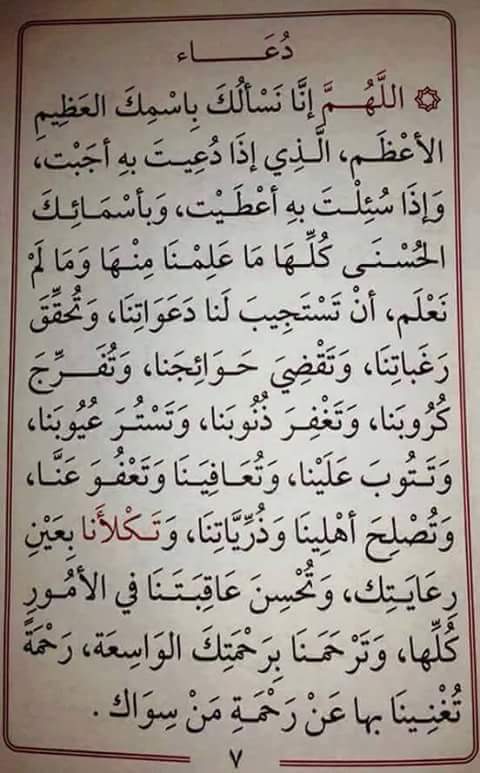 دُعَـــاء
اللَّهُـــمَّ إنَّا نَسْألُكَ بِاسْمِكَ العَظِيمِ
الأعْظَم، الَّذِي إذَا دُعِيـتَ بهِ أجَبْت،
وَإذَا سُئِلْتَ بهِ أعْطَيْت، وَبأسْمَائِكَ
الحُسْنَـى كُلِّـهَا مَا عَلِمْـنَا مِنْـهَا وَمَا لَمْ
نَعْلَم، أنْ تَسْتَجِيبَ لَنا دَعَوَاتِنَا، وَتُحقِّقَ
رَغَباتِنَا، وَتَقْضِيَ حَـوَائِجَنا، وَتُفَــرِّجَ
كُرُوبَنا، وَتَغْفِـرَ ذُنُوبَنا، وَتَسْتُـرَ عُيُوبَنا،
وَتَـتُوبَ عَلَيْنا، وَتُعَـافِيَـنَا وَتَعْفُـوَ عَنَّـا،
وَتُصْلِحَ أهْلِينَا وَذُرِّيَّاتِنَا، وَتَـكْلأَنا بِعَيْنِ
رِعَايَـتِك، وَتُحْسِنَ عَاقِبَـتَـنَا في الأمُـورِ
كُلِّها، وَتَرْحَمَـنا بِرَحْمَتِكَ الوَاسِعَة، رَحْمَةً
تُغْنِـينَا بها عَنْ رَحْمَـةِ مَنْ سِوَاك .
٧